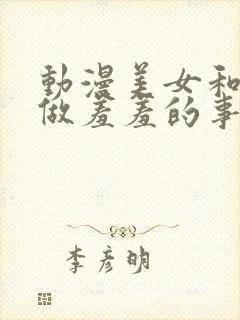 動漫美女和
做羞羞的事
李彦明